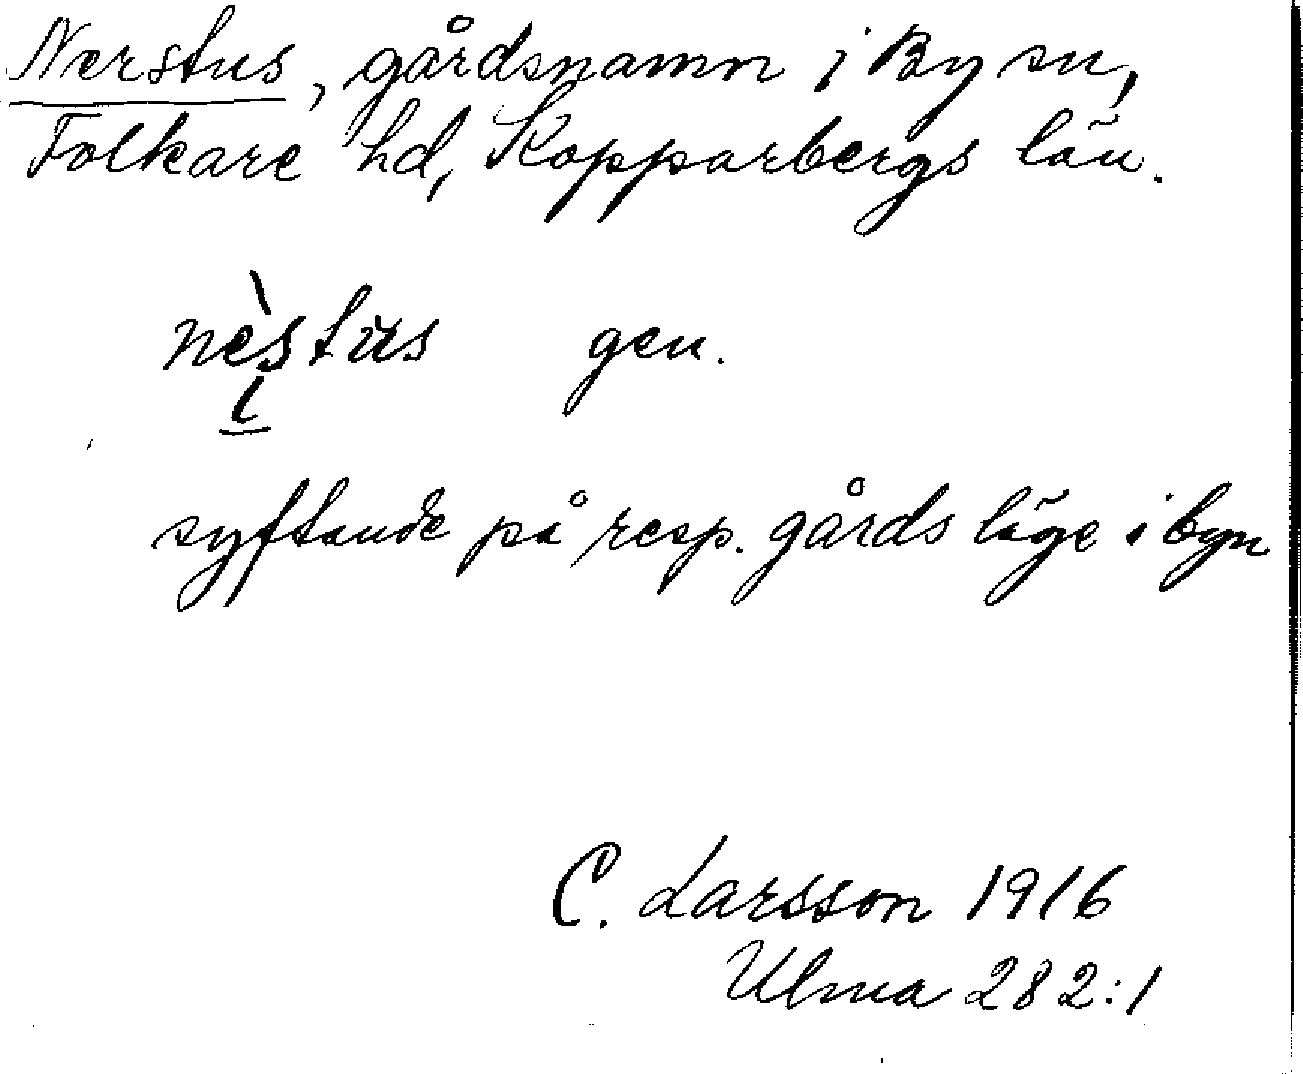 Nerstus, gårdsnamn i By sn,
Folkare hd, Kopparbergs län.
nèstus gen.
syftande på resp. gårds läge i byn
C. Larsson 1916
Ulma 282:1